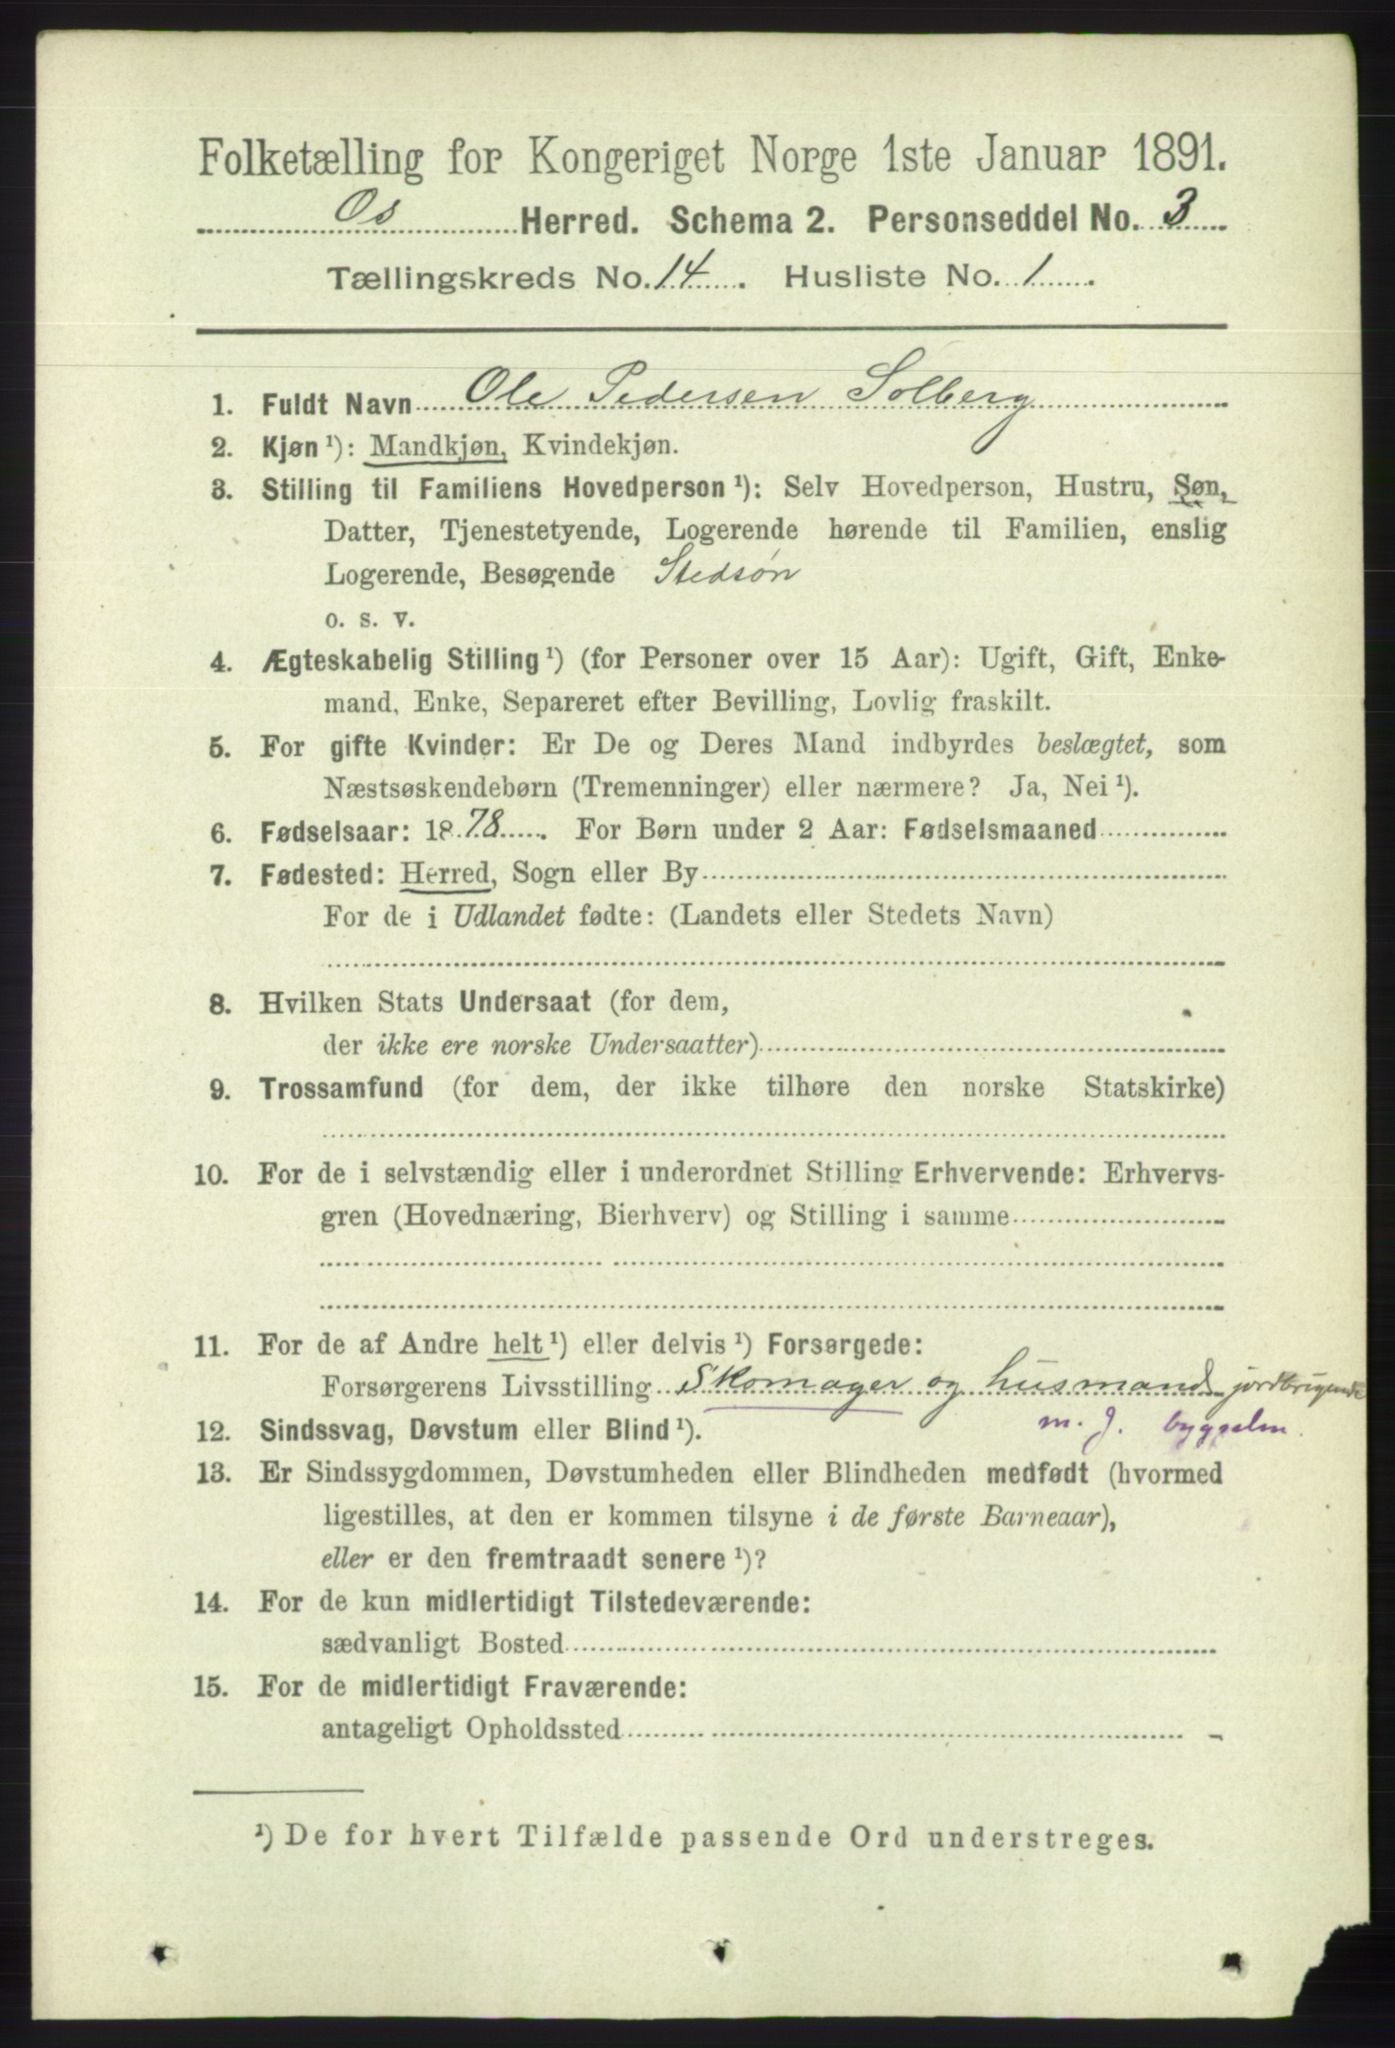 Folketælling for Kongeriget Norge 1ste Januar 1891.
Os Herred. Schema 2. Personseddel No. 3
Tællingskreds No. 14. Husliste No. 1.
1. Fuldt Navn Ole Pedersen Solberg
2. Kjøn ¹): Mandkjøn, Kvindekjøn.
3. Stilling til Familiens Hovedperson ¹): Selv Hovedperson, Hustru, Søn,
Datter, Tjenestetyende, Logerende hørende til Familien, enslig
Logerende, Besøgende Stedsøn
o. s. v.
4. Ægteskabelig Stilling ¹) (for Personer over 15 Aar): Ugift, Gift, Enke-
mand, Enke, Separeret efter Bevilling, Lovlig fraskilt.
5. For gifte Kvinder: Er De og Deres Mand indbyrdes beslægtet, som
Næstsøskendebørn (Tremenninger) eller nærmere? Ja, Nei ¹).
6. Fødselsaar: 1878. For Børn under 2 Aar: Fødselsmaaned
7. Fødested: Herred, Sogn eller By
For de i Udlandet fødte: (Landets eller Stedets Navn)
8. Hvilken Stats Undersaat (for dem,
der ikke ere norske Undersaatter)
9. Trossamfund (for dem, der ikke tilhøre den norske Statskirke)
10. For de i selvstændig eller i underordnet Stilling Erhvervende: Erhvervs-
gren (Hovednæring, Bierhverv) og Stilling i samme
11. For de af Andre helt ¹) eller delvis ¹) Forsørgede:
Forsørgerens Livsstilling Skomager og husmand jordbrugende
m. j.
12. Sindssvag, Døvstum eller Blind ¹).
13. Er Sindssygdommen, Døvstumheden eller Blindheden medfødt (hvormed
ligestilles, at den er kommen tilsyne i de første Barneaar),
eller er den fremtraadt senere ¹)?
14. For de kun midlertidigt Tilstedeværende:
sædvanligt Bosted
15. For de midlertidigt Fraværende:
antageligt Opholdssted
¹) De for hvert Tilfælde passende Ord understreges.